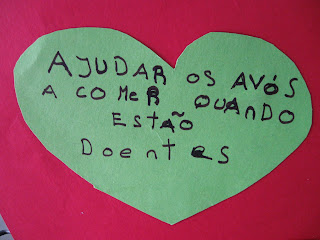 AJUDAR OS AVÓS
A COMER QUANDO
ESTÃO
Doentes